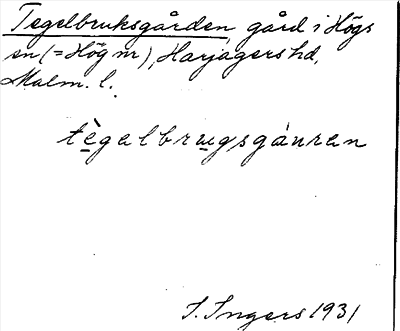 Tegelbruksgården, gård i Högs
sn (= Hög m), Harjagers hd,
Malm. l.
tègalbrugsgånran
I. Ingers 1931